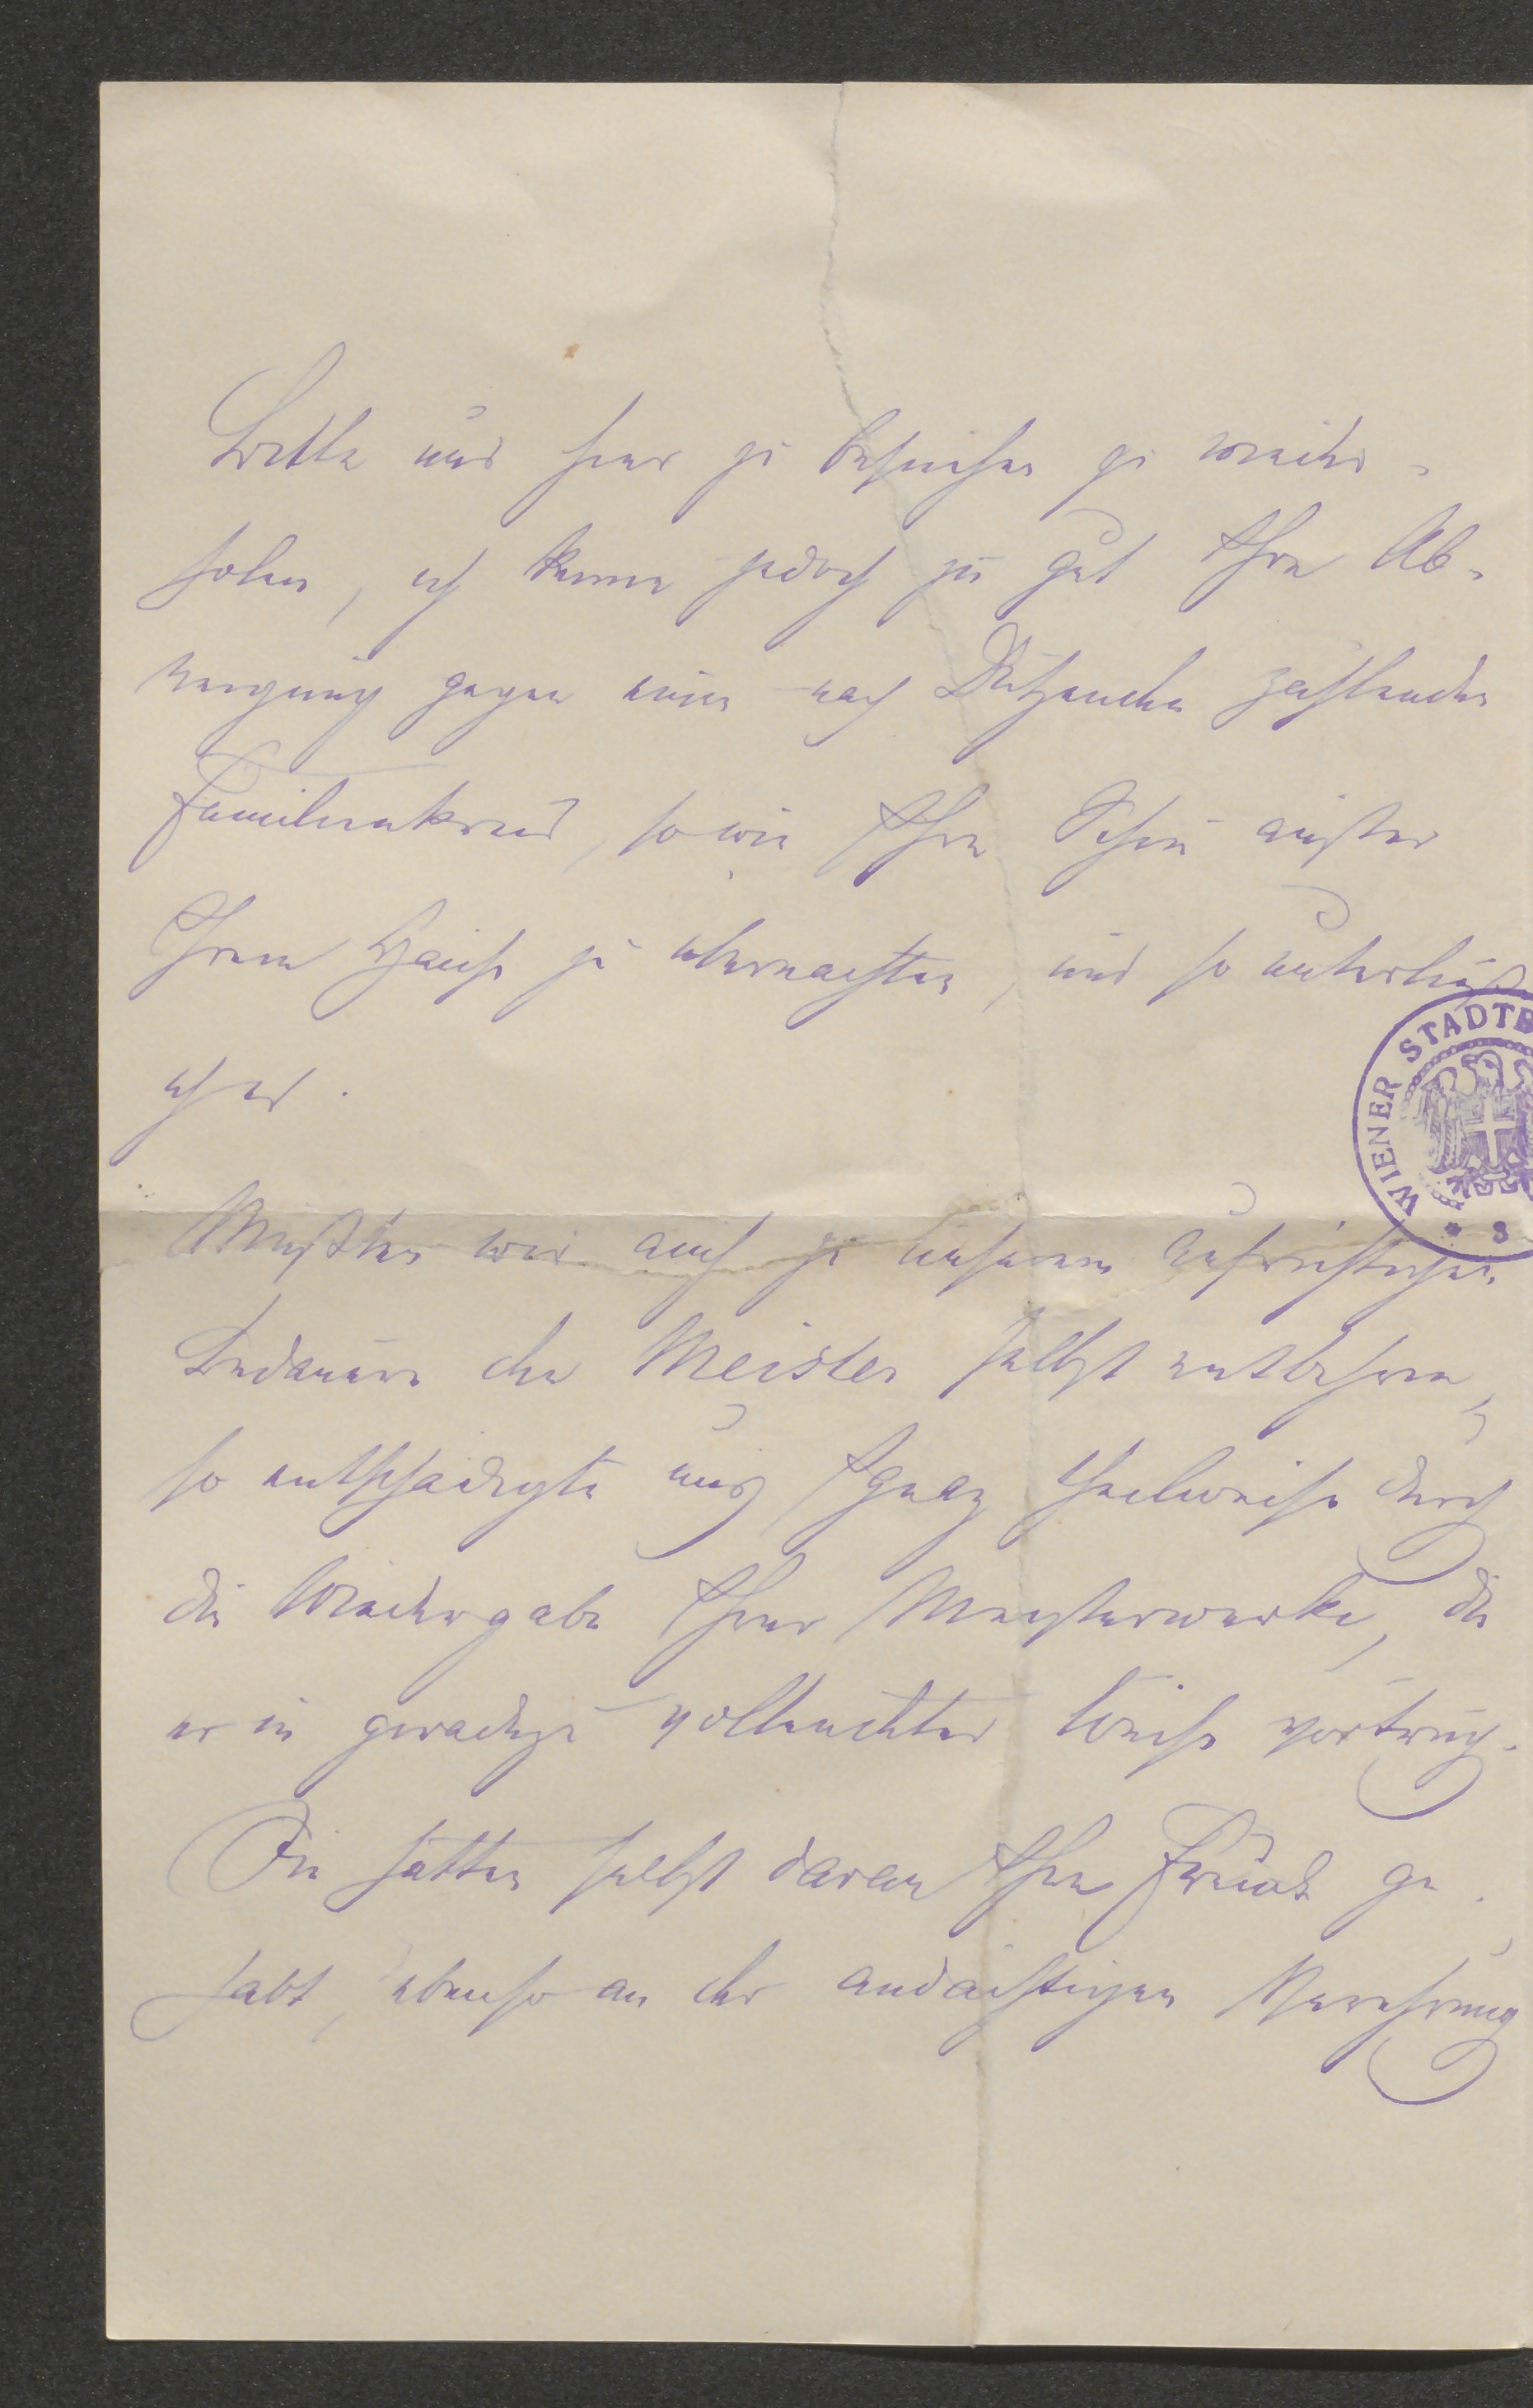 Bitte uns hier zu besuchen zu wieder-
holen, ich kenne jedoch zu gut Ihre Ab-
neigung gegen einen nach Dutzenden zählenden
Familienkreis, sowie Ihre Scheu außer
Ihrem Hause zu übernachten, und so unterließ
ich es.
Mußten wir auch zu unserem aufrichtigen
Bedauern den Meister selbst entbehren,
so entschädigte uns Ignaz theilweise durch
die Wiedergabe Ihrer Meisterwerke, die
er in geradezu vollendeter Weise vortrug.
Sie hätten selbst daran Ihre Freude ge-
habt, ebenso an der andächtigen Verehrung
WIENER STADTB